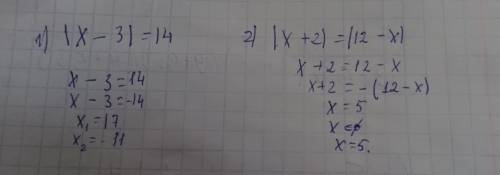 1) |X - 3| = 14
X - 3 = 14
X - 3 = -14
X₁ = 17
X₂ = - 11
2) |X + 2| = |12 - X|
X + 2 = 12 - X
X + 2 = - (12 - X)
X = 5
X =
X = 5.